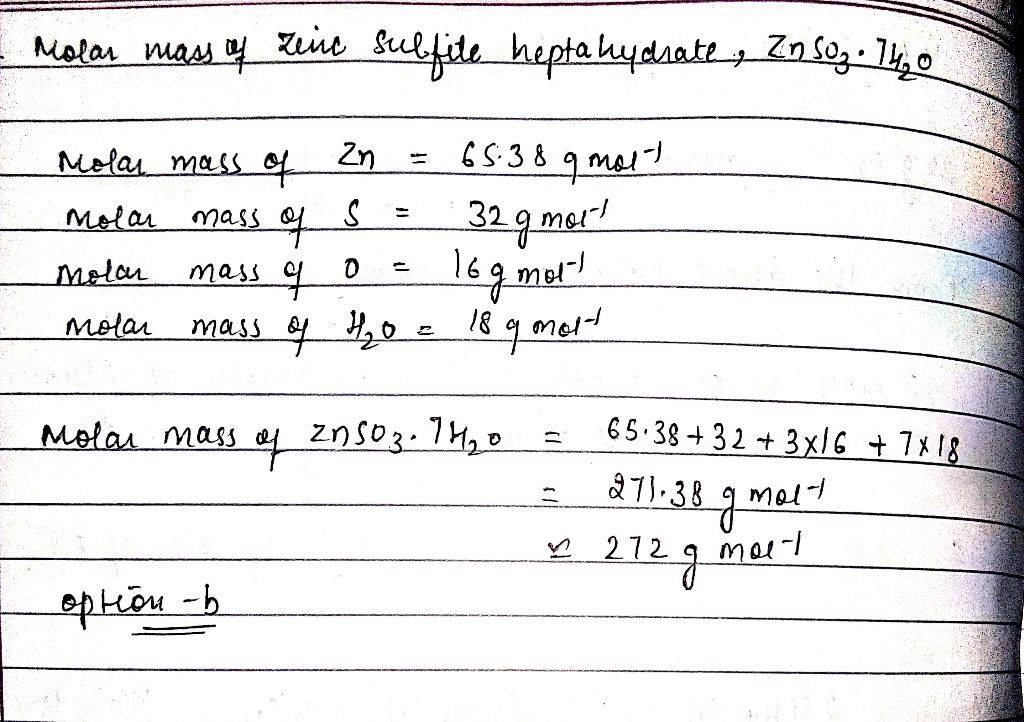 Molar mass of Zinc Sulfite heptahydrate, ZnSO₃·7H₂O
Molar mass of Zn = 65.38 g mol⁻¹
Molar mass of S = 32 g mol⁻¹
Molar mass of O = 16 g mol⁻¹
Molar mass of H₂O = 18 g mol⁻¹
Molar mass of ZnSO₃·7H₂O = 65.38 + 32 + 3x16 + 7x18
= 271.38 g mol⁻¹
≈ 272 g mol⁻¹
option - b